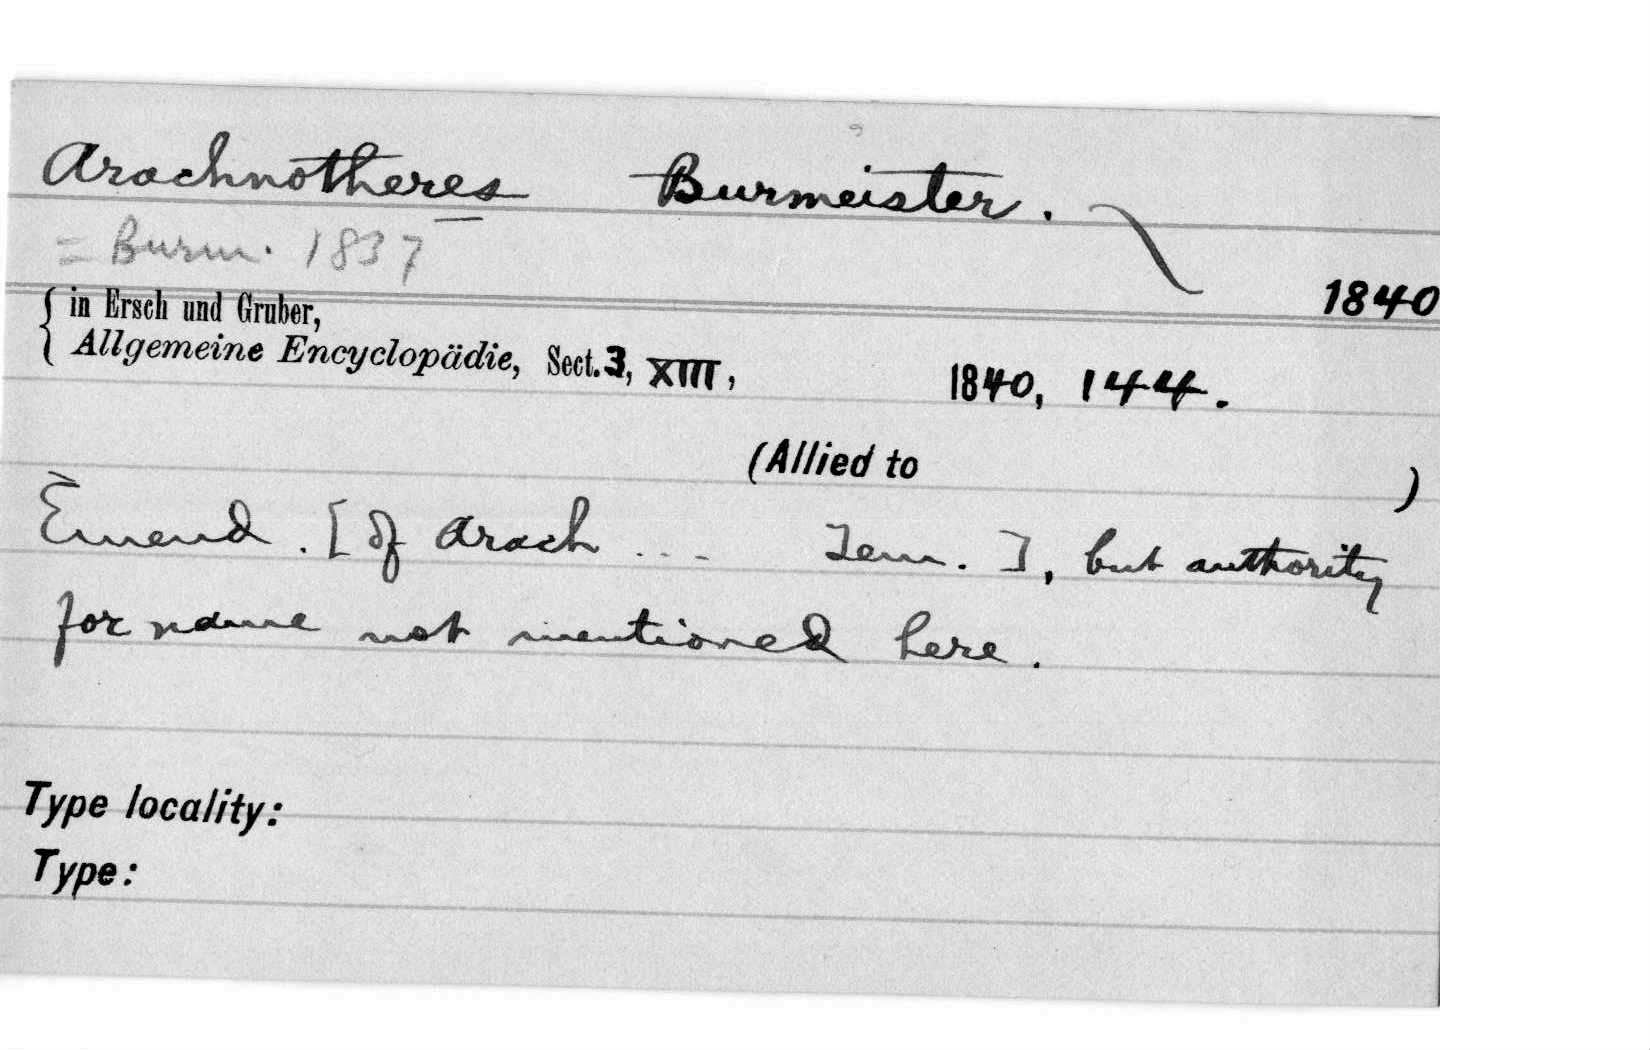 Arachnotheres Burmeister.
= Burm. 1837
1840
{ in Ersch und Gruber,
Allgemeine Encyclopädie, Sect. 3, XIII, 1840, 144.
(Allied to )
Emend. [of Arach ... Tem.], but authority
for name not mentioned here.
Type locality:
Type: